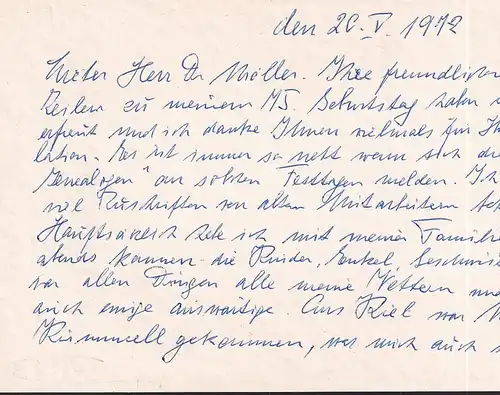 den 20. V. 1972
Werter Herr Dr. Möller. Ihre freundlichen
Zeilen zu meinem 75. Geburtstag haben
erfreut und ich danke Ihnen vielmals für Ih
lation. Es ist immer so nett wenn sich die
Genealogen" an solchen Festtagen melden. Ich
viel Zuschriften von alten Mitarbeitern
Hauptsächlich lebe ich mit meiner Familie
abends kamen die Kinder, Enkel, Geschwi
vor allen Dingen alle meine Vettern und
auch einige auswärtige. Aus Kiel war
gekommen, was mich auch